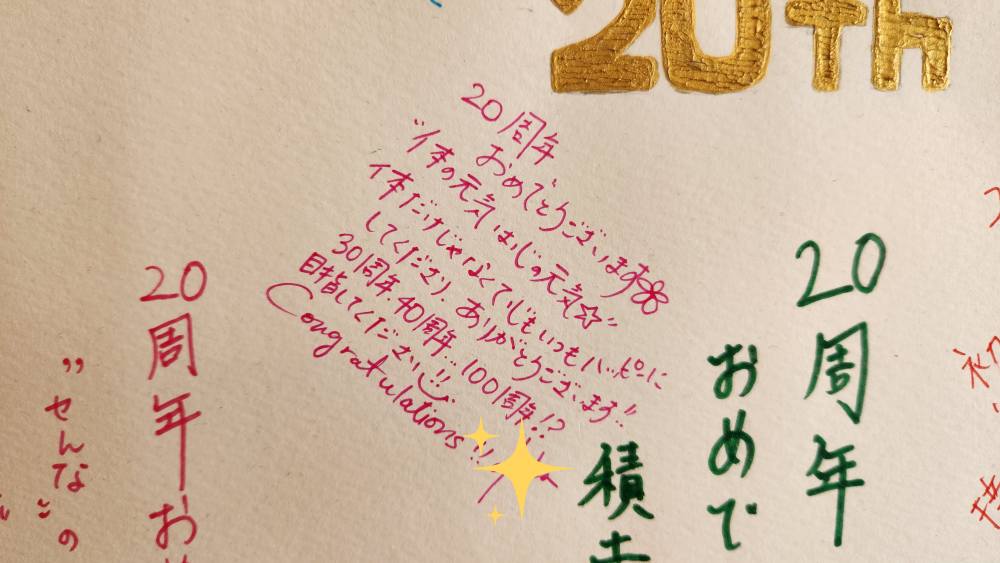 20th
20周年
おめでとうございます
"体の元気は心の元気☆"
体だけじゃなくて心もいつもハッピーに
してくださり、ありがとうございます!!
30周年、40周年…100周年!?
目指してください!!
Congratulations!!
20周年
おめで
積
20周年お
"せんなの